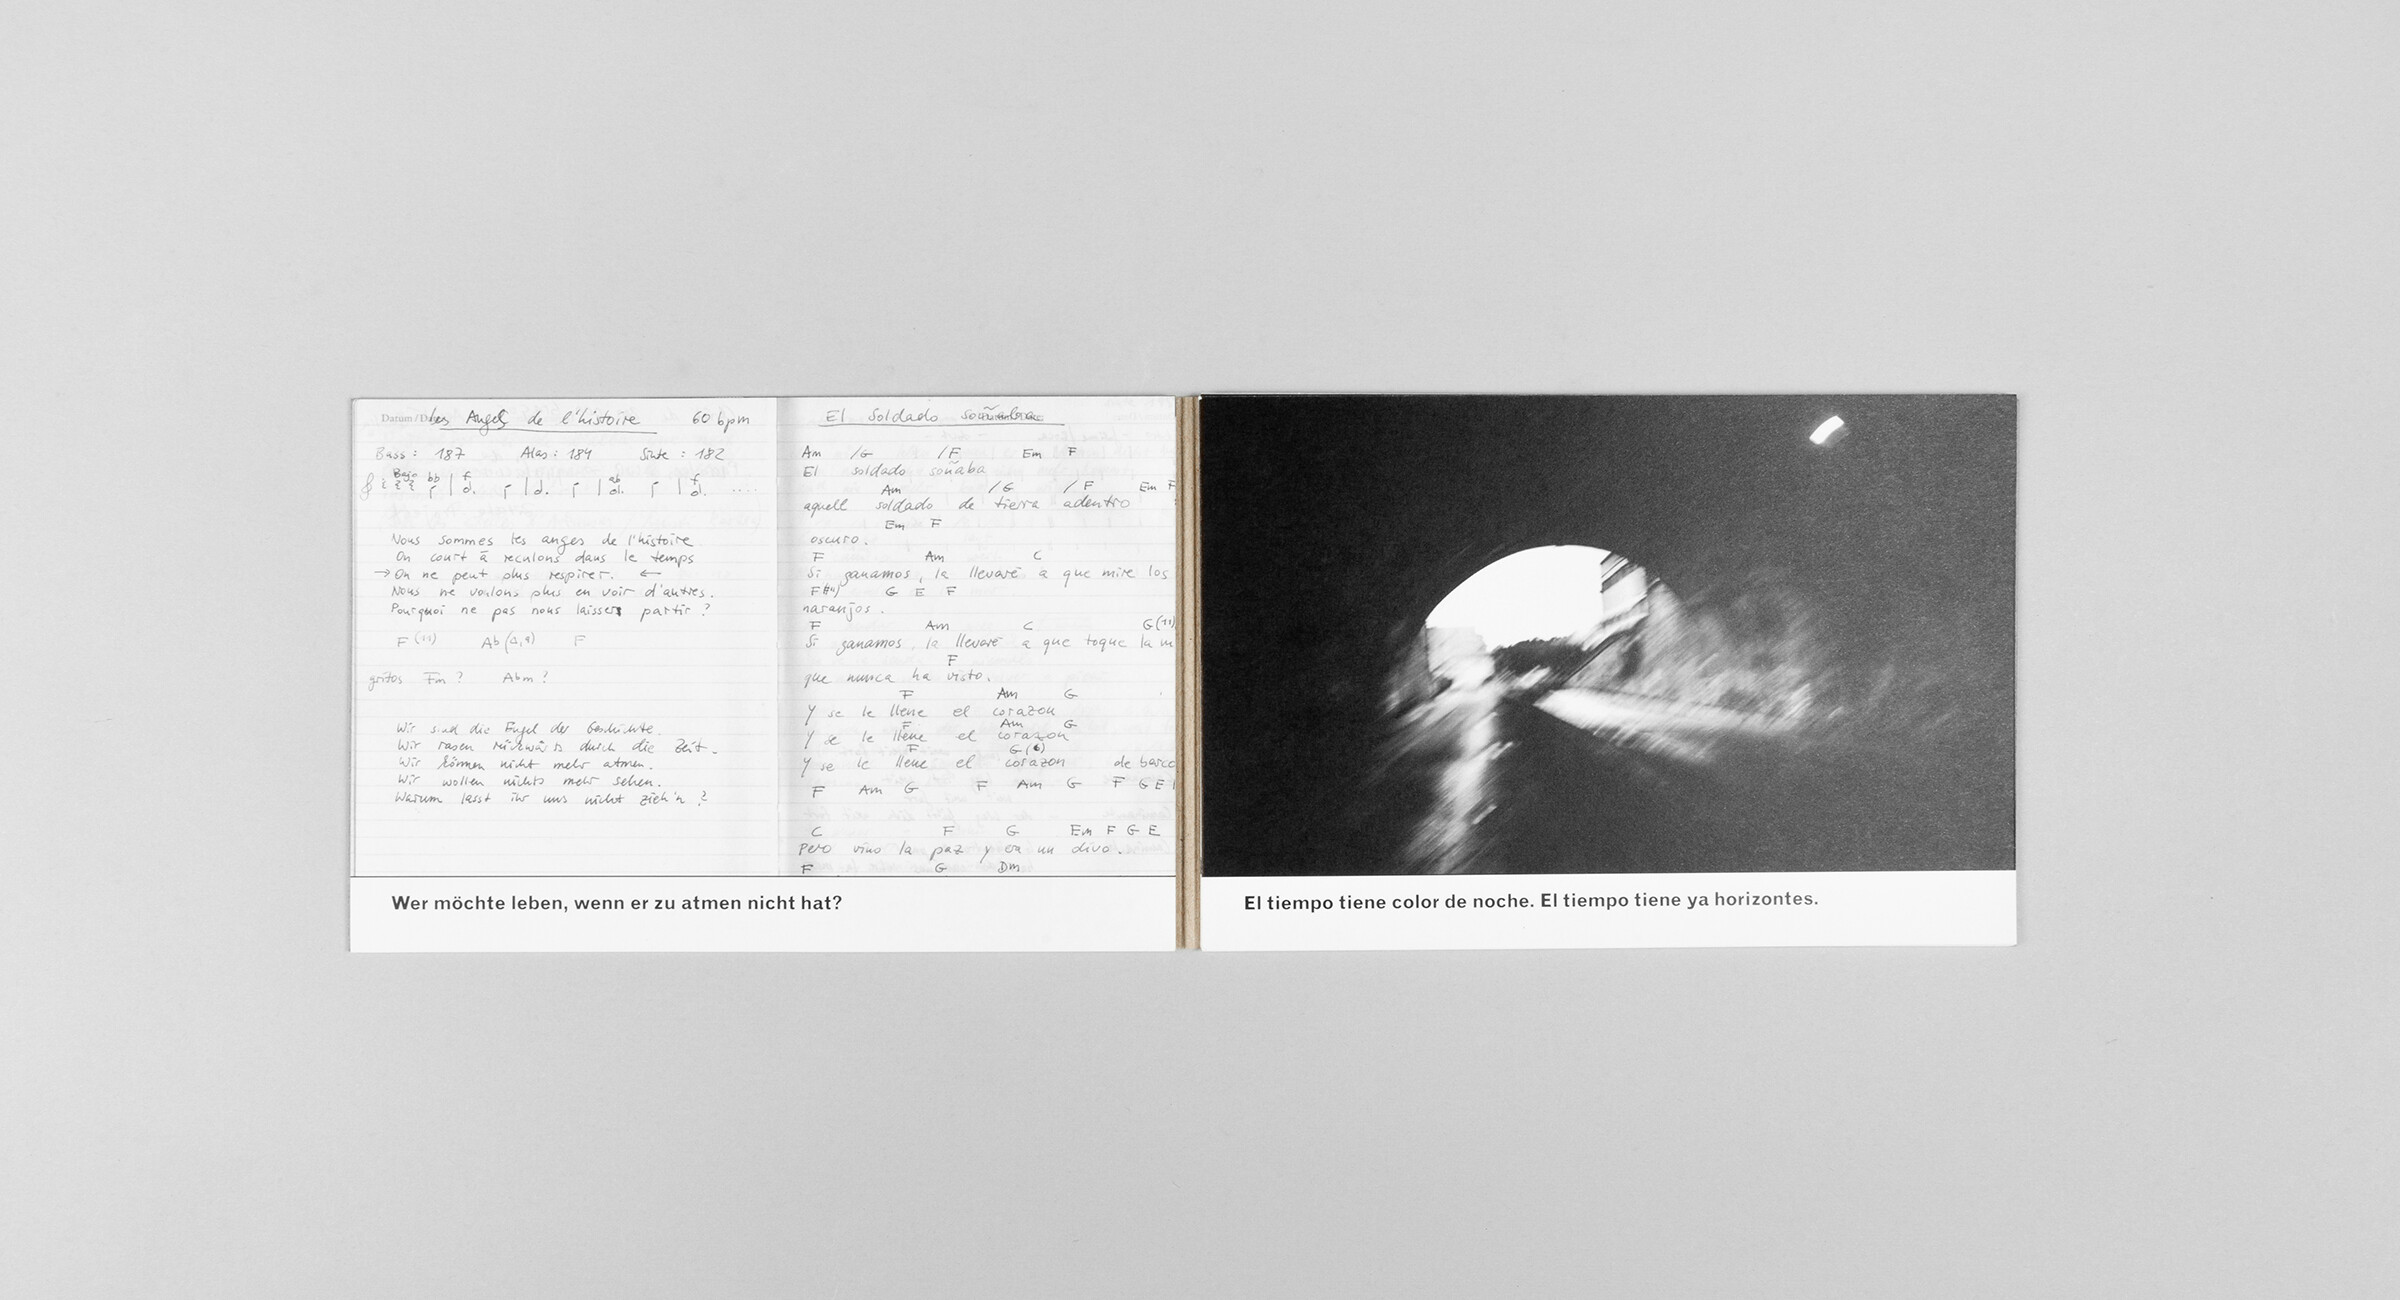 Datum/D
Les Anges de l'histoire 60 bpm
Bass: 187 Alas: 184 Sinte: 182
Bajo bb f ab f
....
Nous sommes les anges de l'histoire
On court à reculons dans le temps
→ On ne peut plus respirer. ←
Nous ne voulons plus en voir d'autres.
Pourquoi ne pas nous laisser partir?
F (11) Ab (Δ,9) F
gritos Fm? Abm?
Wir sind die Engel der Geschichte.
Wir rasen rückwärts durch die Zeit.
Wir können nicht mehr atmen.
Wir wollen nichts mehr sehen.
Warum lasst ihr uns nicht zieh'n?
El Soldado soñaba
Am /G /F Em F
El soldado soñaba
Am /G /F Em F
aquell soldado de tierra adentro
Em F
oscuro.
F Am C
Si ganamos, la llevaré a que mire los
G E F
naranjos.
F Am C G(11)
Si ganamos, la llevaré a que toque la m
F
que nunca ha visto.
F Am G
Y se le llene el corazon
F Am G
Y se le llene el corazon
F G(6)
Y se le llene el corazon de barco
F Am G F Am G F G E
C F G Em F G E
Pero vino la paz y era un divo.
F G Dm
Wer möchte leben, wenn er zu atmen nicht hat?
El tiempo tiene color de noche. El tiempo tiene ya horizontes.